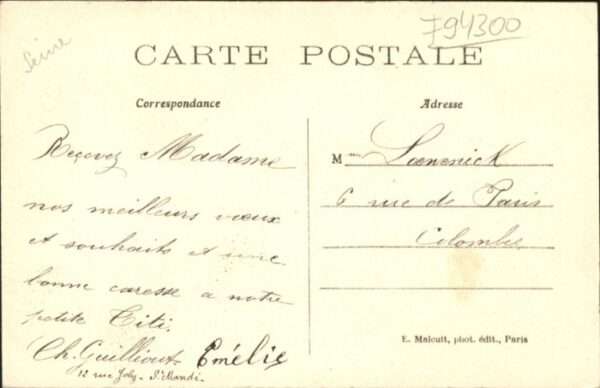 Seine
794300
CARTE POSTALE
Correspondance
Adresse
Recevez Madame
nos meilleurs vœux
et souhaits et une
bonne caresse a notre
petite Titi.
Ch. Guilliout Emélie
12 rue Joly - St Mandé.
M
6 rue de Paris
Colombe
E. Malcuit, phot. édit., Paris